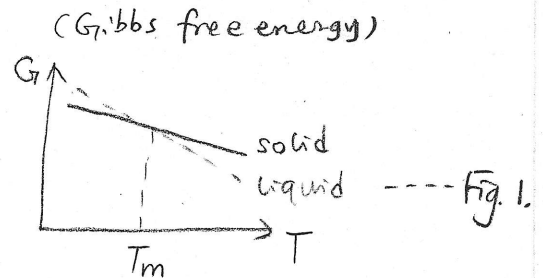 (Gibbs free energy)
G
solid
liquid ---- Fig. 1.
Tm
T